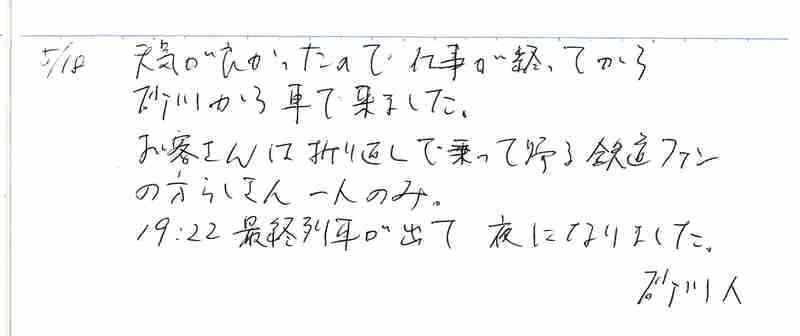 5/18 天気が良かったので仕事が終ってから
砂川から車で来ました。
お客さんは折り返しで乗って帰る鉄道ファン
の方らしき人 一人のみ。
19:22 最終列車が出て 夜になりました。
砂川人